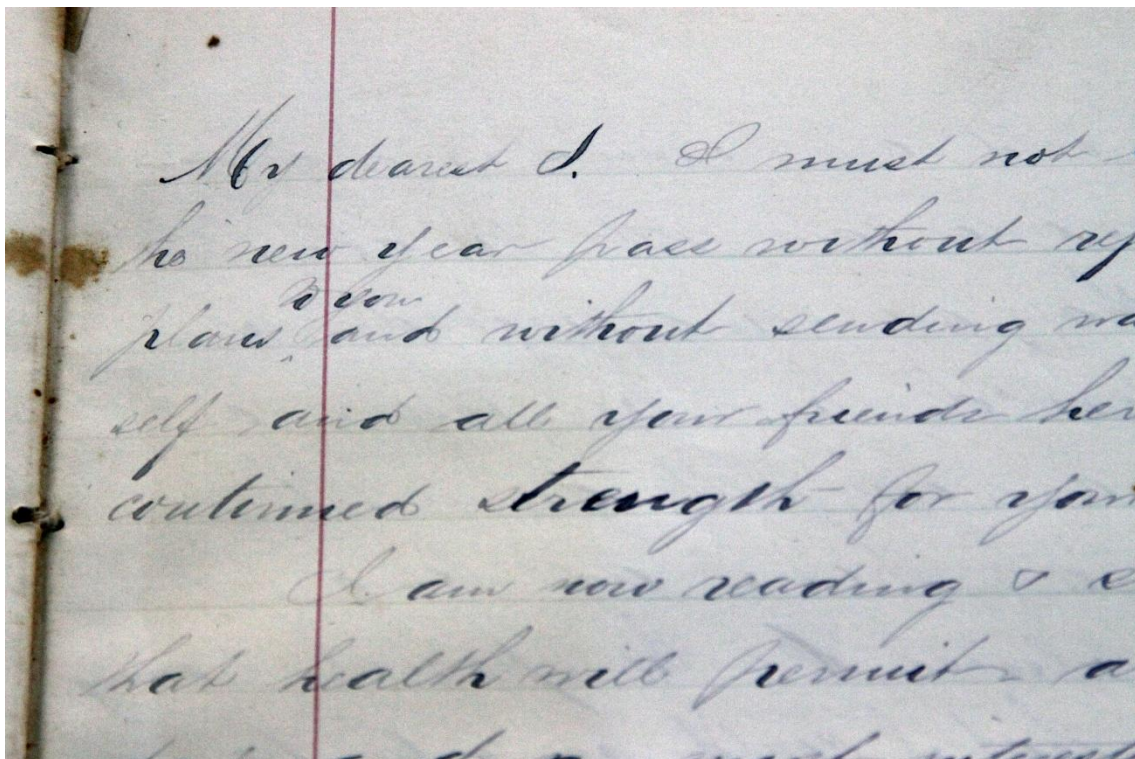 My dearest S. I must not
the new year pass without rep
to you
plans and without sending wa
self and all your friends her
continued strength for your
I am now reading & s
that health will permit a